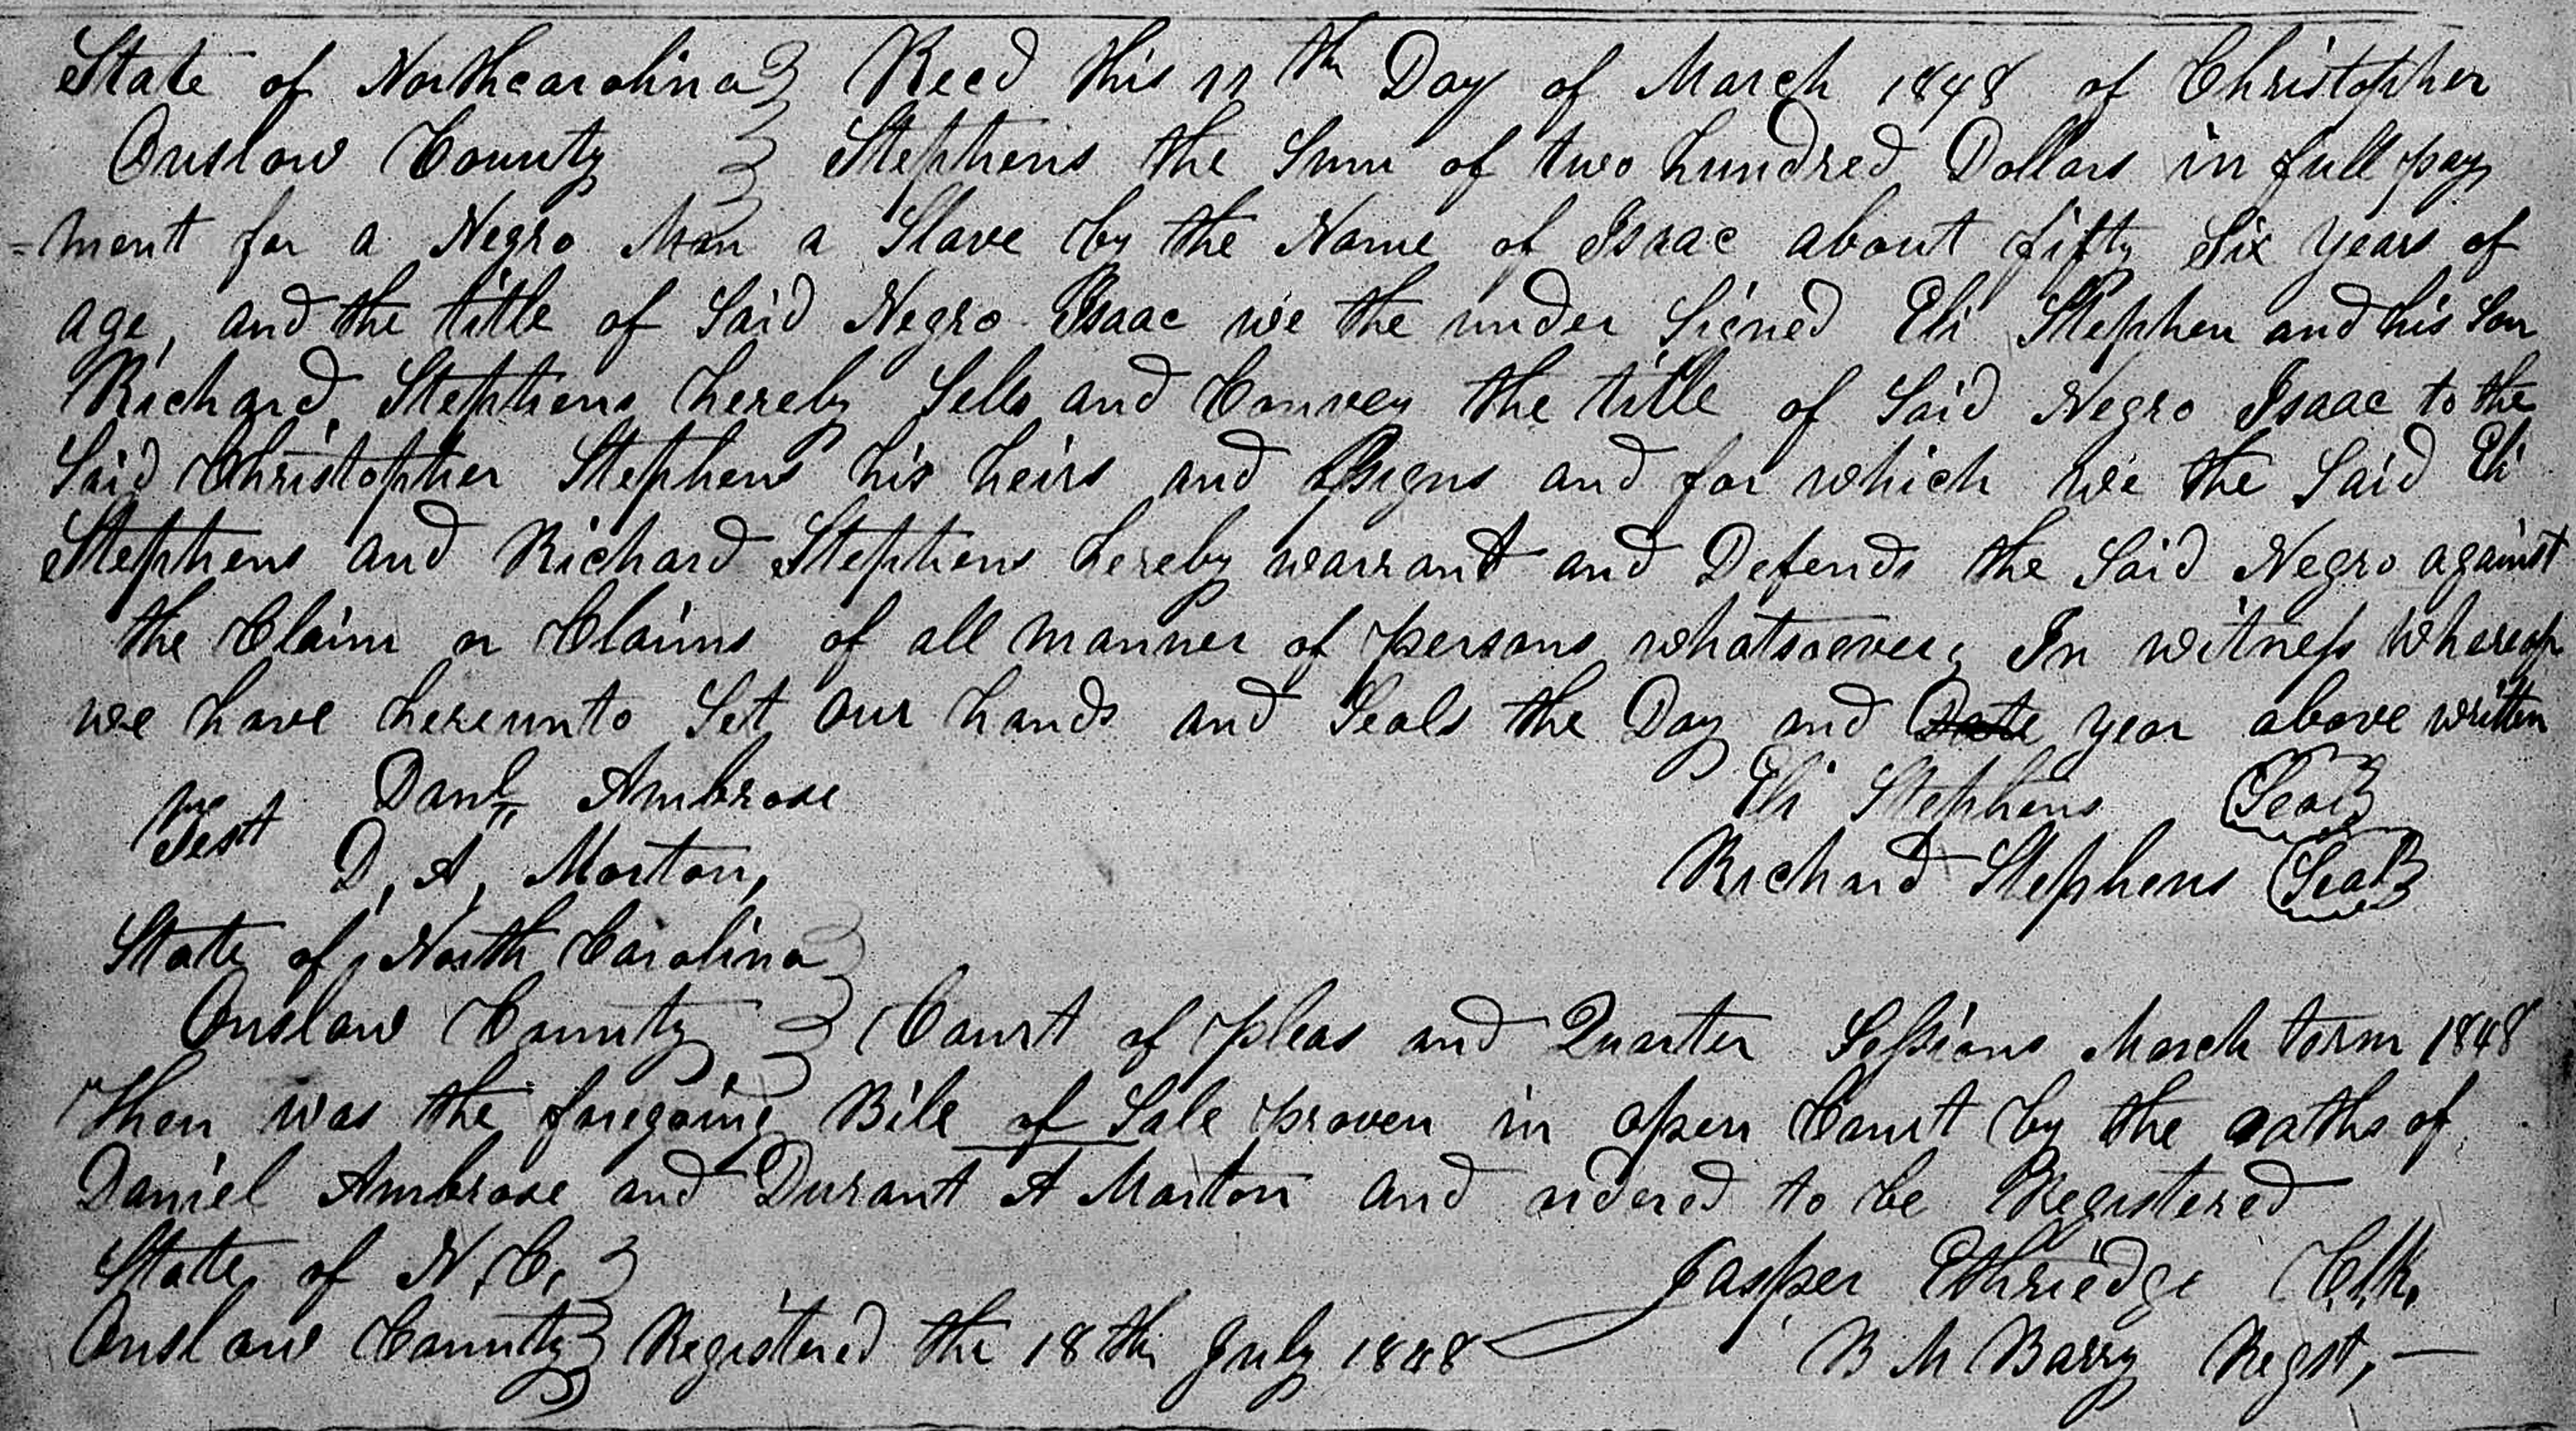 State of Northcarolina } Recd this 11th Day of March 1848 of Christopher
Onslow County } Stephens the Sum of two hundred Dollars in full pay
=ment for a Negro Man a Slave by the Name of Isaac about fifty Six years of
age, and the title of Said Negro Isaac we the under Signed Eli Stephen and his Son
Richard Stephens hereby Sells and Convey the title of Said Negro Isaac to the
Said Christopher Stephens his heirs and assigns and for which we the Said Eli
Stephens and Richard Stephens hereby warrant and Defends the Said Negro against
the Claim or Claims of all manner of persons whatsoever, In witness whereof
we have hereunto Set our hands and Seals the Day and Date year above written
Danl Ambrose Eli Stephens Seal
Test D, A, Morton, Richard Stephens Seal
State of North Carolina }
Onslow County } Court of pleas and Quarter Sessions March term 1848
Then was the foregoing Bile of Sale proven in open Court by the oaths of
Daniel Ambrose and Durant A Morton and ordered to be Registered
State of N, C, } Jasper Ethriedge Clk,
Onslow County } Registered the 18th July 1848 B M Barry Regst, —